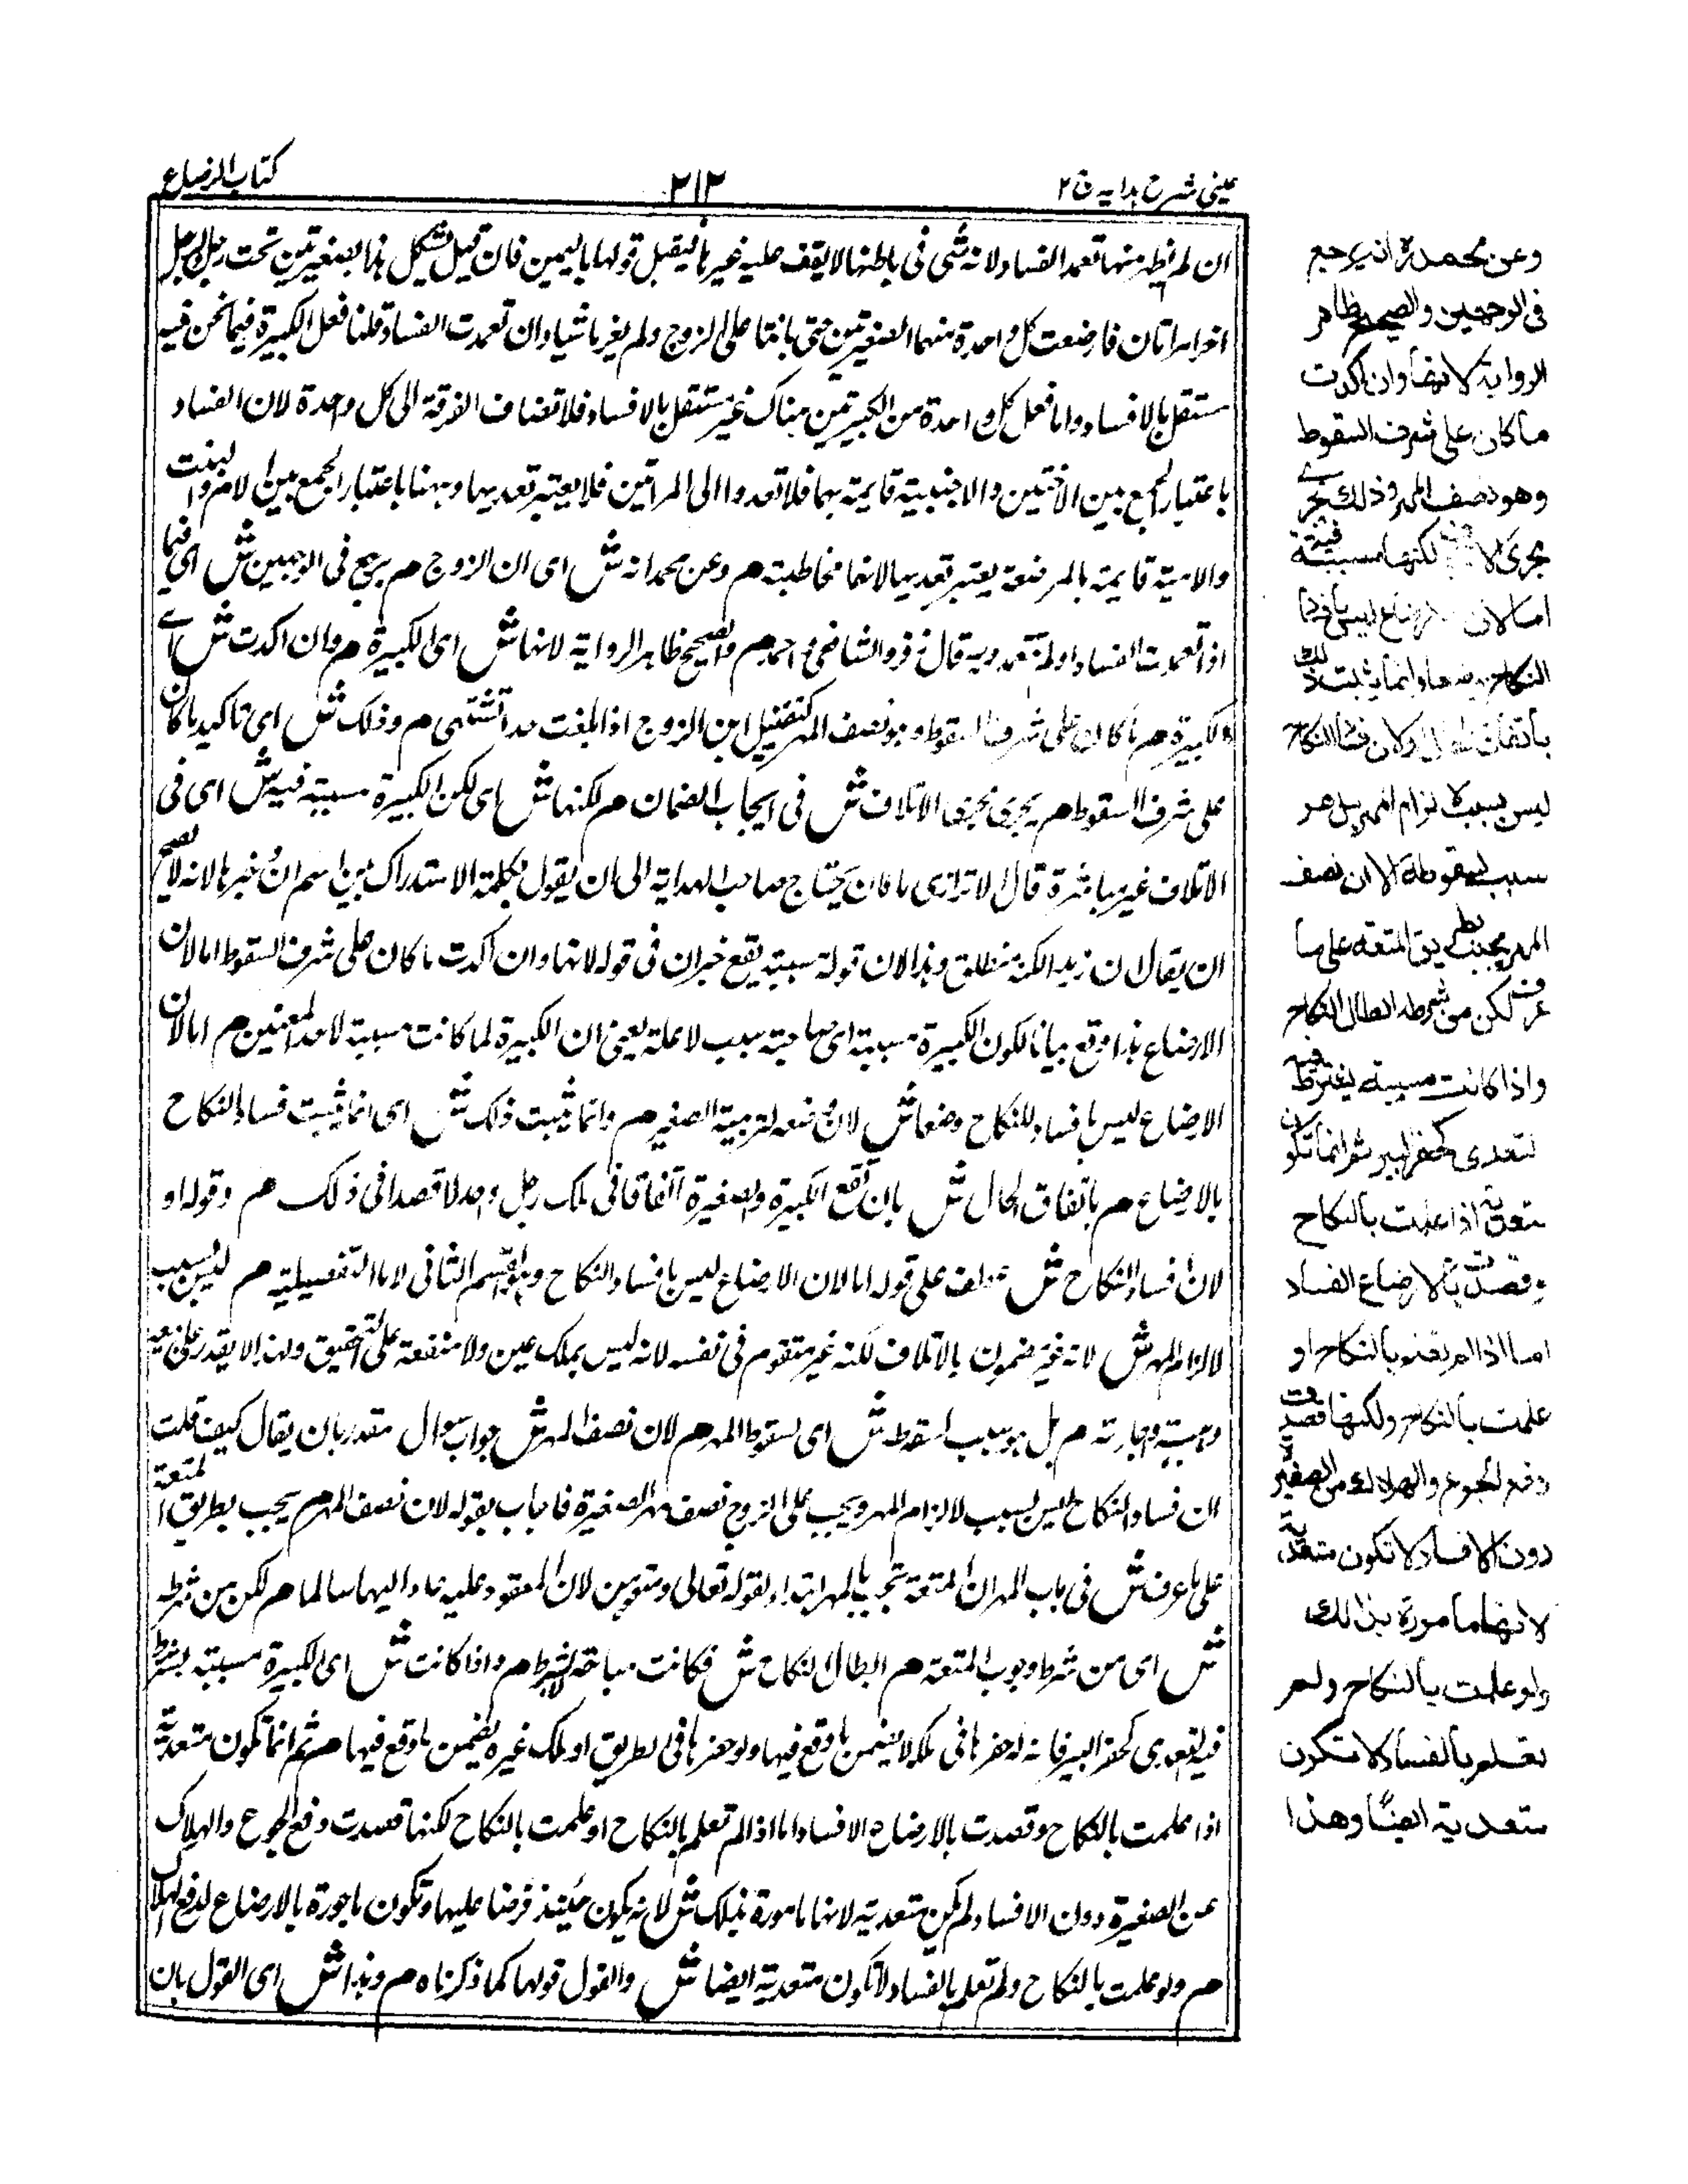 عینی شرح ہدایہ ج ۲
۲۱۲
کتاب الرضاع
ان لم یظهر منها تعمد الفساد لانه شی فی باطنها لا یقف علیه غیرها فیقبل قولها بالیمین فان قیل یشکل هذا بصغیرتین تحت رجل لرجل
اخر امراتان فارضعت کل واحدة منهما الصغیرتین حتی بانتا علی الزوج ولم یغرما شیا وان تعمدت الفساد قلنا فعل الکبیرة فیما نحن فیه
مستقل بالافساد واما فعل کل واحدة من الکبیرتین هناک غیر مستقل بالافساد فلا تضاف الفرقة الی کل واحدة لان الفساد
باعتبار الجمع بین الاختین والاجنبیة قایمة بهما فلا تعدوا الی المراتین فلا یعتبر تعدیهما وههنا باعتبار الجمع بین الام والبنت
والامیة قایمة بالمرضعة یعتبر تعدیها لانها مخاطبة م وعن محمد انه ش ای ان الزوج م یرجع فی الوجهین ش ای فیما
اذا تعمدت الفساد او لم تتعمد وبه قال زفر والشافعی واحمد م والصحیح ظاهر الروایة لانها ش ای الکبیرة م وان اکدت ش اے
الکبیرة م ما کان علی شرف السقوط وهو نصف المهر کتقبیل ابن الزوج اذا بلغت حدا تشتهی م وذلک ش ای تاکید ما کان
علی شرف السقوط م یجری مجری الاتلاف ش فی ایجاب الضمان م لکنها ش ای لکن الکبیرة مسببة فیه ش ای فی
الاتلاف غیر مباشرة قال الاترازی ما کان یحتاج صاحب الهدایة الی ان یقول بکلمة الاستدراک بین اسم ان وخبرها لانه لا یصح
ان یقال ان زیدا لکنه منطلق وهذا لان قوله مسببة یقع خبر ان فی قوله لانها وان اکدت ما کان علی شرف السقوط اما لان
الارضاع هذا وقع بیانا لکون الکبیرة مسببة ای صاحبة سبب لا علة یعنی ان الکبیرة لما کانت مسببة لاحد المعنیین م اما لان
الارضاع لیس بافساد للنکاح وضعا ش لان وضعه لتربیة الصغیر م وانما یثبت ذلک ش ای انما یثبت فساد النکاح
بالارضاع م باتفاق الحال ش بان تقع الکبیرة والصغیرة اتفاقا فی ملک رجل واحد لا قصدا فی ذلک م وقوله او
لان فساد النکاح ش عطف علی قوله اما لان الارضاع لیس بافساد النکاح وهو القسم الثانی لاما التفصیلیة م لیس بسبب
لالزام المهر ش لانه غیر مضمون بالاتلاف لکنه غیر متقوم فی نفسه لانه لیس بملک عین ولا منفعة علی التحقیق ولهذا لا یقدر علی بیعه
وهبته واجارته م بل هو سبب لسقوطه ش ای لسقوط المهر م لان نصف المهر ش جواب سوال مقدر بان یقال کیف قلت
ان فساد النکاح لیس بسبب لالزام المهر ویجب علی الزوج نصف مهر الصغیرة فاجاب بقوله لان نصف المهر م یجب بطریق المتعة
علی ما عرف ش فی باب المهر ان المتعة تجب بالمهر ابتداء لقوله تعالی ومتعوهن لان المعقود علیه عاد الیها سالما م لکن من شرطه
ش ای من شرط وجوب المتعة م ابطال النکاح ش فکانت صاحبة الشرط م واذا کانت ش ای الکبیرة مسببة یشترط
فیه التعدی کحفر البیر فانه لو حفرها فی ملکه لا یضمن ما وقع فیها ولو حفرها فی الطریق او ملک غیره یضمن ما وقع فیها م ثم انما تکون متعدیة
اذا علمت بالنکاح وقصدت بالارضاع الافساد اما اذا لم تعلم بالنکاح او علمت بالنکاح لکنها قصدت دفع الجوع والهلاک
عن الصغیرة دون الافساد لم تکن متعدیة لانها مامورة بذلک ش لانه یکون حینئذ فرضا علیها وتکون ماجورة بالارضاع لدفع الهلاک
م ولو علمت بالنکاح ولم تعلم بالفساد لا تکون متعدیة ایضا ش والقول قولها کما ذکرناه م وهذا ش ای القول بان
وعن محمدؒ انه یرجع
فی الوجهین والصحیح ظاهر
الروایة لانها وان اکدت
ما کان علی شرف السقوط
وهو نصف المهر وذلک یجرے
مجری الا لکنها مسببة فیه
اما لان الارضاع لیس بافساد
النکاح وضعا وانما یثبت ذلک
باتفاق الحال او لان فساد النکاح
لیس بسبب لالزام المهر بل هو
سبب لسقوطه الا ان نصف
المهر یجب بطریق المتعة علی ما
عرف لکن من شرطه ابطال النکاح
واذا کانت مسببة یشترط فیه
التعدی کحفر البیر ثم انما تکون
متعدیة اذا علمت بالنکاح
وقصدت بالارضاع الفساد
اما اذا لم تعلم بالنکاح او
علمت بالنکاح ولکنها قصدت
دفع الجوع والهلاک من الصغیرة
دون الافساد لا تکون متعدیة
لانها مامورة بذالک
ولو علمت بالنکاح ولم
تعلم بالفساد لا تکون
متعدیة ایضًا وهذا